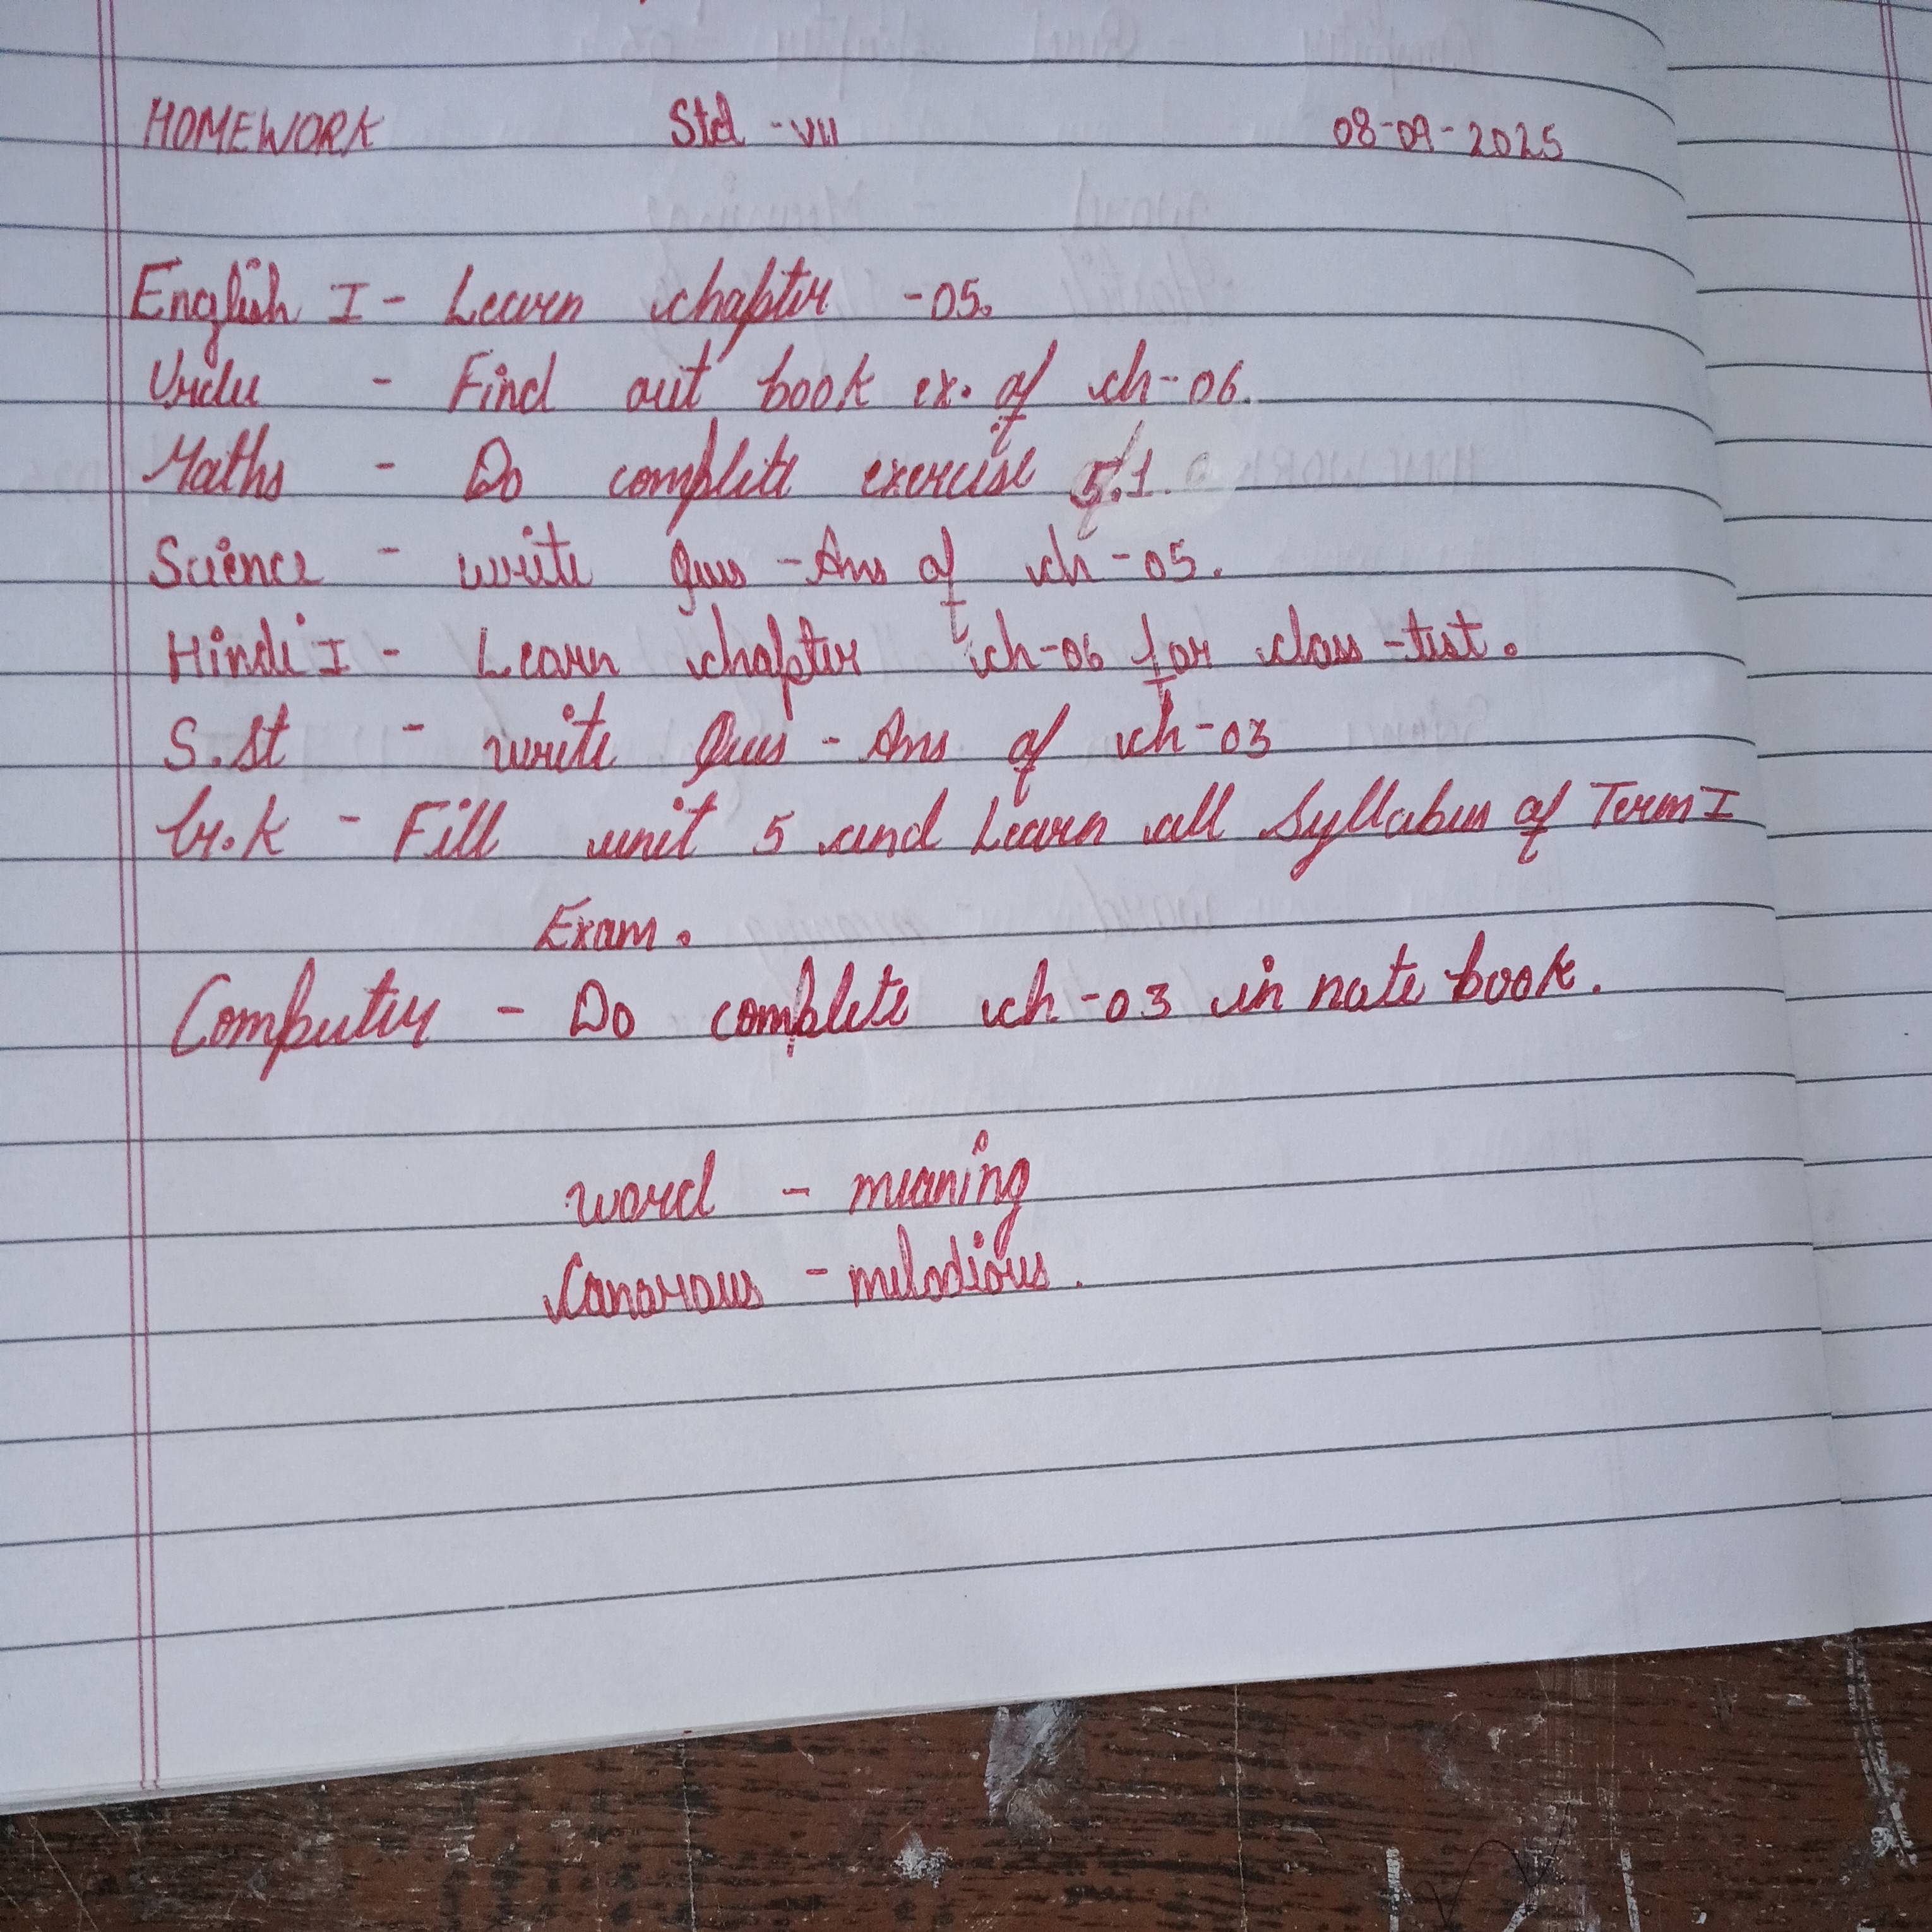 HOMEWORK Std - VII 08-09-2025
English I - Learn chapter - 05.
Urdu - Find out book ex. of ch-06.
Maths - Do complete exercise 5.1.
Science - write Ques - Ans of ch - 05.
Hindi I - Learn chapter ch-06 for class - test.
S.st - write Ques - Ans of ch-03
G.K - Fill unit 5 and Learn all Syllabus of Term I
Exam.
Computer - Do complete ch-03 in note book.
word - meaning
Canorous - melodious.